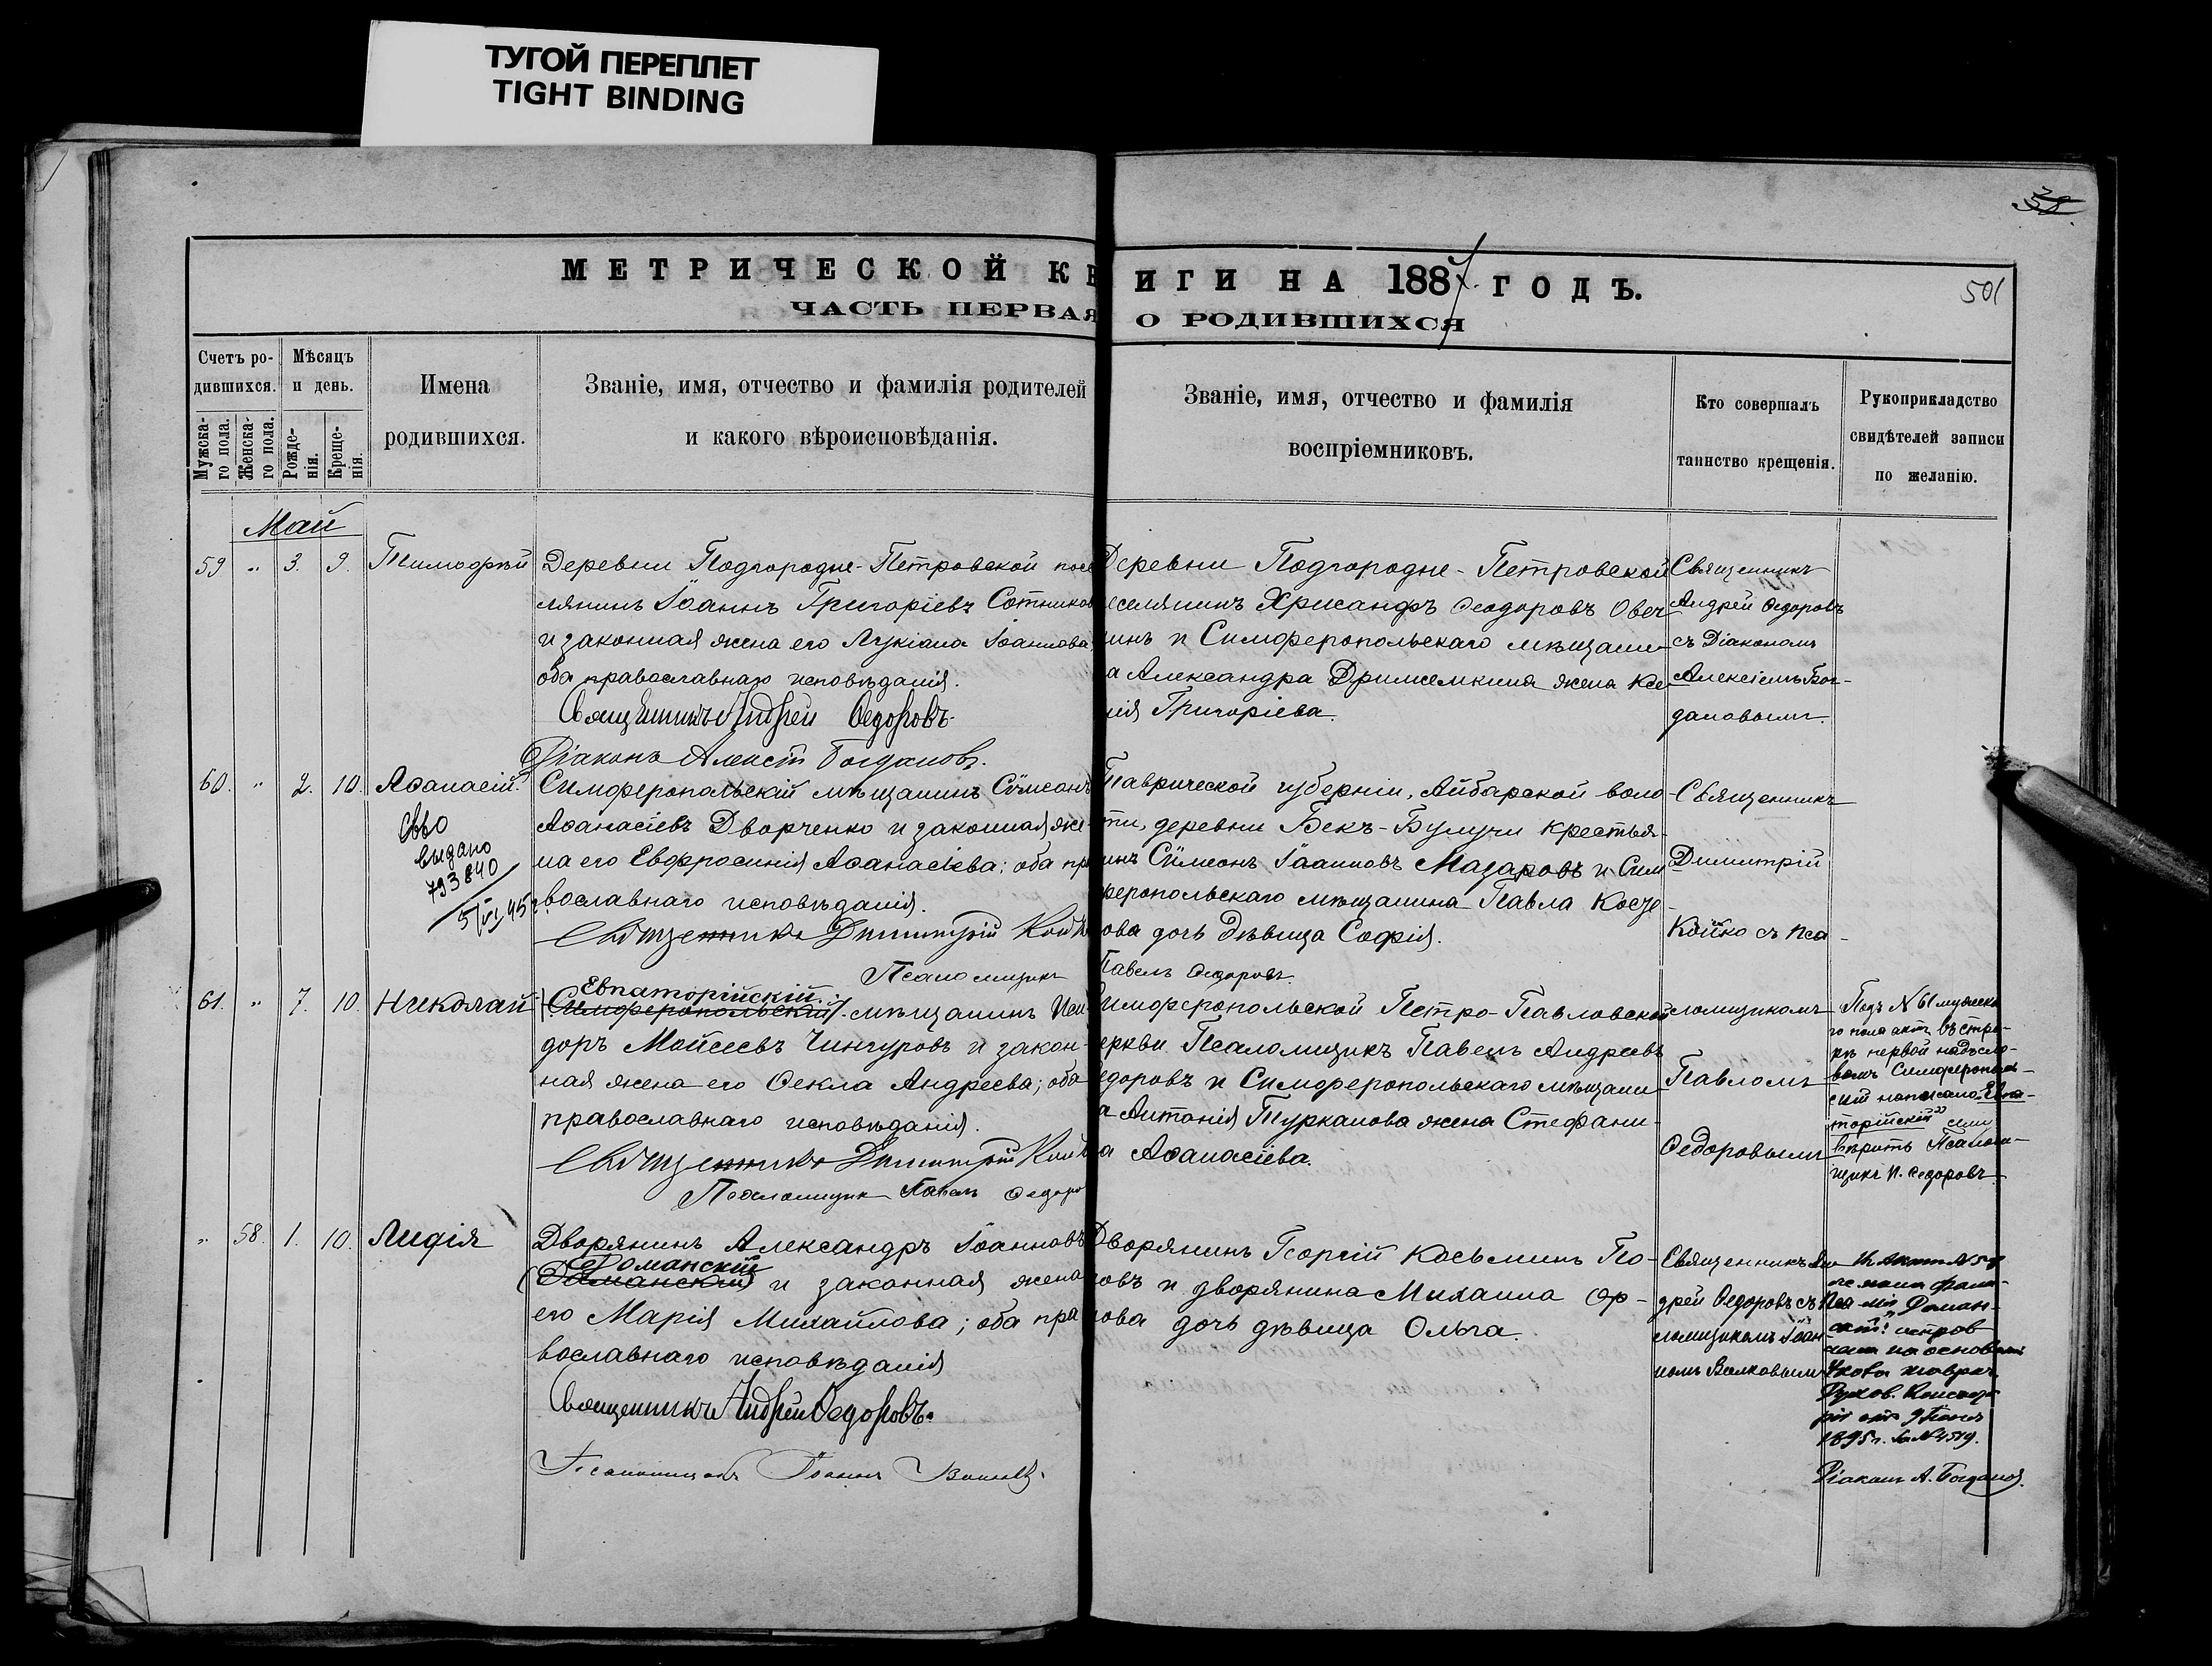 ТУГОЙ ПЕРЕПЛЕТ
TIGHT BINDING
38
501
МЕТРИЧЕСКОЙ КНИГИ НА 1887 ГОДЪ.
ЧАСТЬ ПЕРВАЯ О РОДИВШИХСЯ
Счетъ ро-
дившихся.
Мужска-
го пола.
Женска-
го пола.
Мѣсяцъ
и день.
Рожде-
нія.
Креще-
нія.
Имена
родившихся.
Званіе, имя, отчество и фамилія родителей
и какого вѣроисповѣданія.
Званіе, имя, отчество и фамилія
воспріемниковъ.
Кто совершалъ
таинство крещенія.
Рукоприкладство
свидѣтелей записи
по желанію.
Май
59 " 3. 9. Тимофей
Деревни Подгородне-Петровской посе
лянинъ Іоаннъ Григоріевъ Сотников
и законная жена его Лукіана Іоаннова
оба православнаго исповѣданія.
Священникъ Андрей Ѳедоровъ
Діаконъ Алексій Богдановъ.
Деревни Подгородне-Петровской
еселянинъ Хрисанфъ Ѳеодоровъ Овеч-
инъ и Симферопольскаго мѣщани-
а Александра жена Ксе-
нія Григоріева.
Священникъ
Андрей Ѳедоровъ
съ Діакономъ
Алексіемъ Бог-
дановымъ.
60. " 2. 10. Аѳанасій
Св-во
выдано
793840
5/VI 45 г.
Симферопольскій мѣщанинъ Сѵмеонъ
Аѳанасіевъ Дворченко и законная же-
на его Евфросинія Аѳанасіева; оба пр
вославнаго исповѣданія.
Священникъ Димитрій Койк
Псаломщикъ Павелъ Ѳедоровъ
Таврической губерніи, Айбарской воло-
ти, деревни Бекъ-Булучи крестья-
инъ Сѵмеонъ Іоанновъ Мазаровъ и Сим
феропольскаго мѣщанина Павла
ова дочь дѣвица Софія.
Священникъ
Димитрій
Койко съ Пса-
ломщикомъ
Павломъ
Ѳедоровымъ
61. " 7. 10. Николай
Евпаторійскій
Симферопольскій мѣщанинъ Иси
доръ Моѵсеевъ Чингуровъ и закон-
ная жена его Ѳекла Андреева; оба
православнаго исповѣданія.
Священникъ Димитрій Койк
Псаломщикъ Павелъ Ѳедоро
Симферопольской Петро-Павловской
еркви Псаломщикъ Павелъ Андреевъ
едоровъ и Симферопольскаго мѣщани-
а Антонія Турканова жена Стефани-
а Аѳанасіева.
Подъ N 61 мужска
го пола актъ въ стро-
кѣ первой надъ сло-
вомъ Симферополь-
скій написано „Евпа-
торійскій"
вѣрить Псалом-
щикъ П. Ѳедоровъ
" 58. 1. 10. Лидія
Дворянинъ Александръ Іоанновъ
Романскій
и законная жена
его Марія Михайлова; оба пра
вославнаго исповѣданія
Священникъ Андрей Ѳедоровъ.
Псаломщикъ Іоаннъ Волковъ.
Дворянинъ Георгій Косьминъ По-
овъ и дворянина Михаила Ор-
ова дочь дѣвица Ольга.
Священникъ Ан-
дрей Ѳедоровъ съ Пса
ломщикомъ Іоан-
номъ Волковымъ
Діаконъ А. Богдановъ.
1895 г. за N 4519.